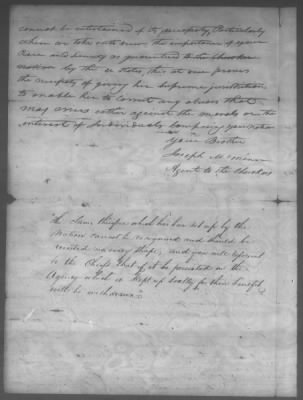 cannot be entertained of its necessity, Particularly
when we take into view the importance of your
Peace and Amity as guaranteed to the Cherokee
nation by the U States, this at one proves
the necessity of giving her Supreme jurisdiction
to enable her to correct any abuses that
may arise either against the morals or the
interest of Individuals Composing your Nation
Your Brother
Joseph McMinn
Agent to the Cherokees
The claim therefore which has been set up by the
Nation cannot be recognized and should be
and you will represent
to the Chiefs that if it be persisted in the
Agency which is kept up Solely for their benefit
will be withdrawn